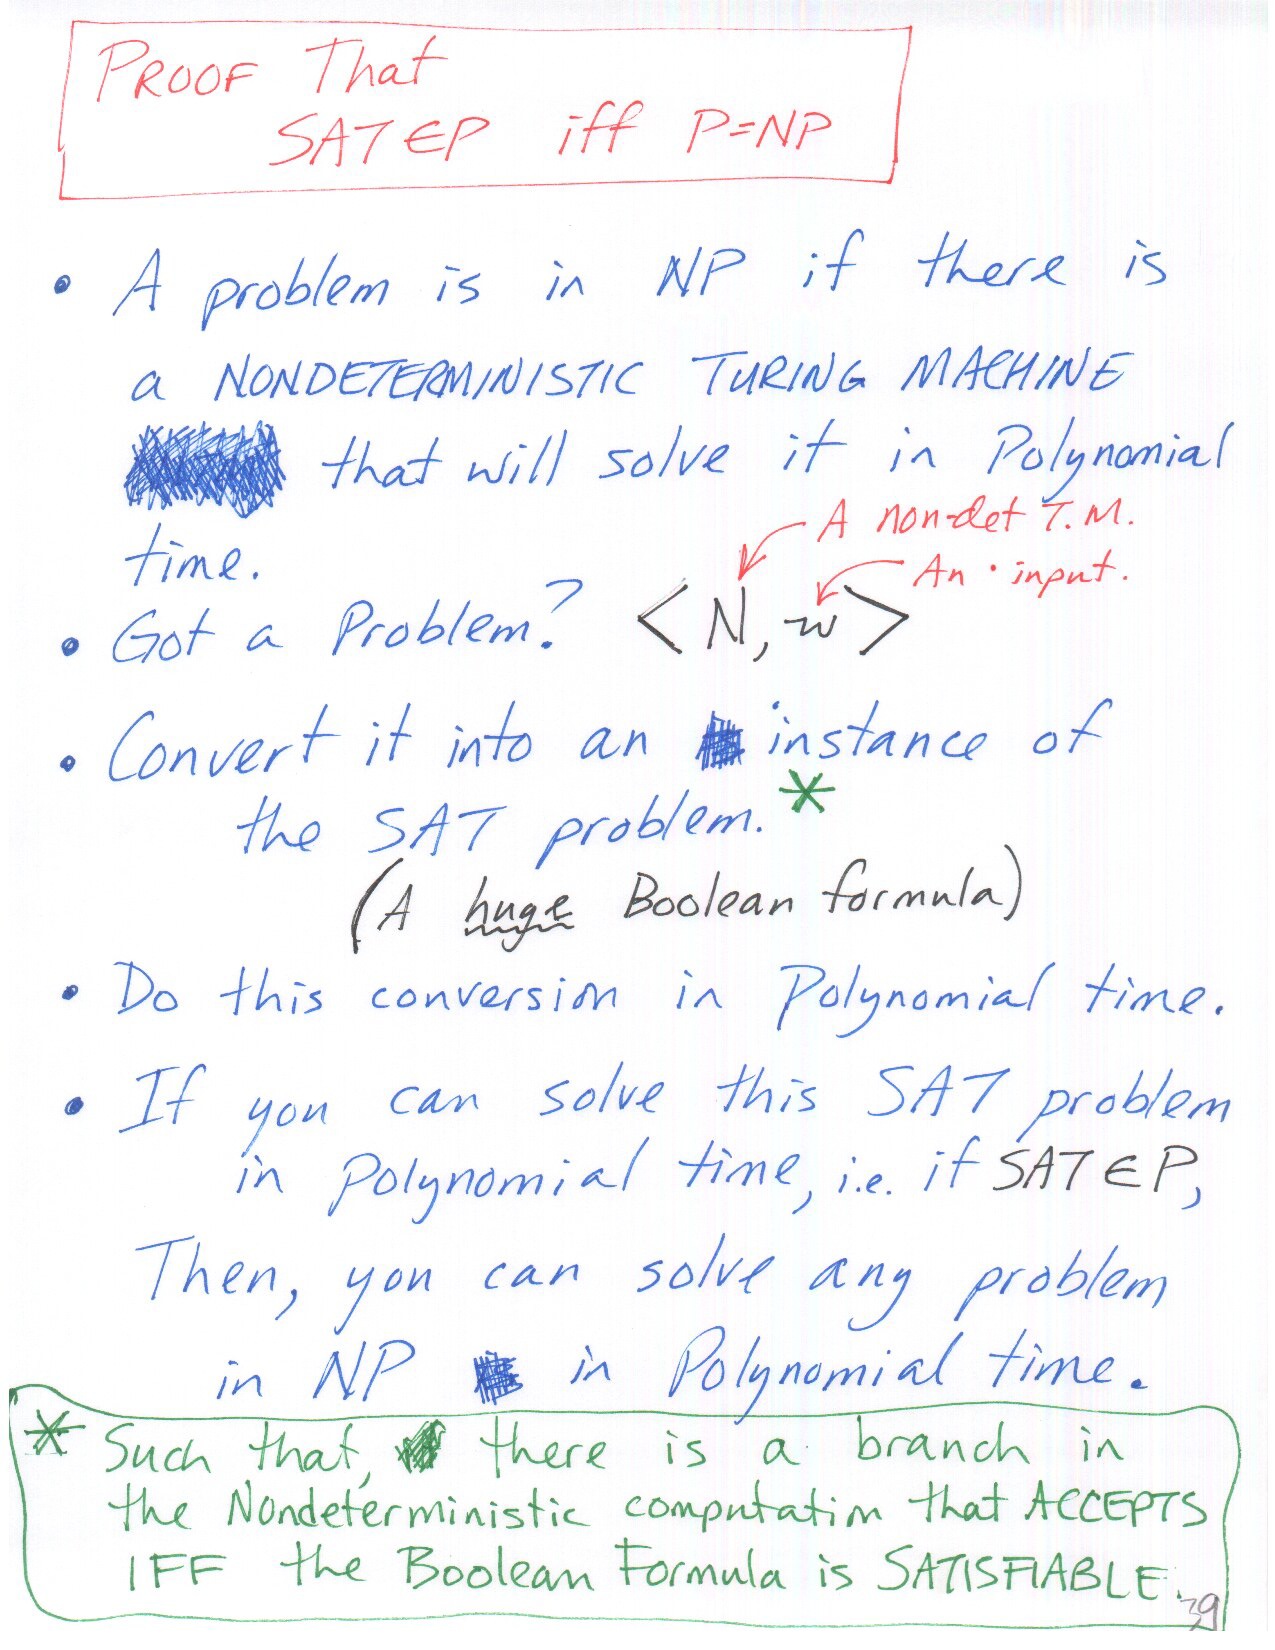 PROOF That
SAT ∈ P iff P=NP
• A problem is in NP if there is
a NONDETERMINISTIC TURING MACHINE
that will solve it in Polynomial
time.
A non-det T.M.
An input.
• Got a Problem? <N, w>
• Convert it into an instance of
the SAT problem.*
(A huge Boolean formula)
• Do this conversion in Polynomial time.
• If you can solve this SAT problem
in Polynomial time, i.e. if SAT ∈ P,
Then, you can solve any problem
in NP in Polynomial time.
* Such that, there is a branch in
the Nondeterministic computation that ACCEPTS
IFF the Boolean Formula is SATISFIABLE.
39